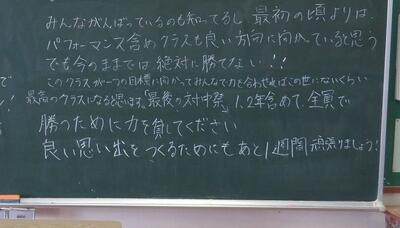 みんながんばっているのも知ってるし 最初の頃よりは、
パフォーマンス含めクラスも良い方向に向かっていると思う
でも今のままでは絶対に勝てない!!
このクラスが一つの目標に向かってみんなで力を合わせればこの世にないくらい
最高のクラスになると思います。「最後の対中祭」1、2年含めて、全員で
勝つために力を貸してください
良い思い出をつくるためにもあと1週間頑張りましょう!
で
!